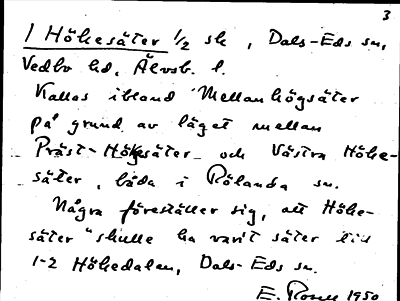 3
1 Hökesäter 1/2 sk, Dals-Eds sn,
Vedbo hd, Älvsb. l.
Kallas ibland Mellanhögsäter
på grund av läget mellan
Präst-Hökesäter och Västra Höke-
säter, båda i Rölanda sn.
Några föreställer sig, att Höke-
säter "skulle ha varit säter till
1-2 Hökedalen, Dals-Eds sn.
E. Rosell 1950